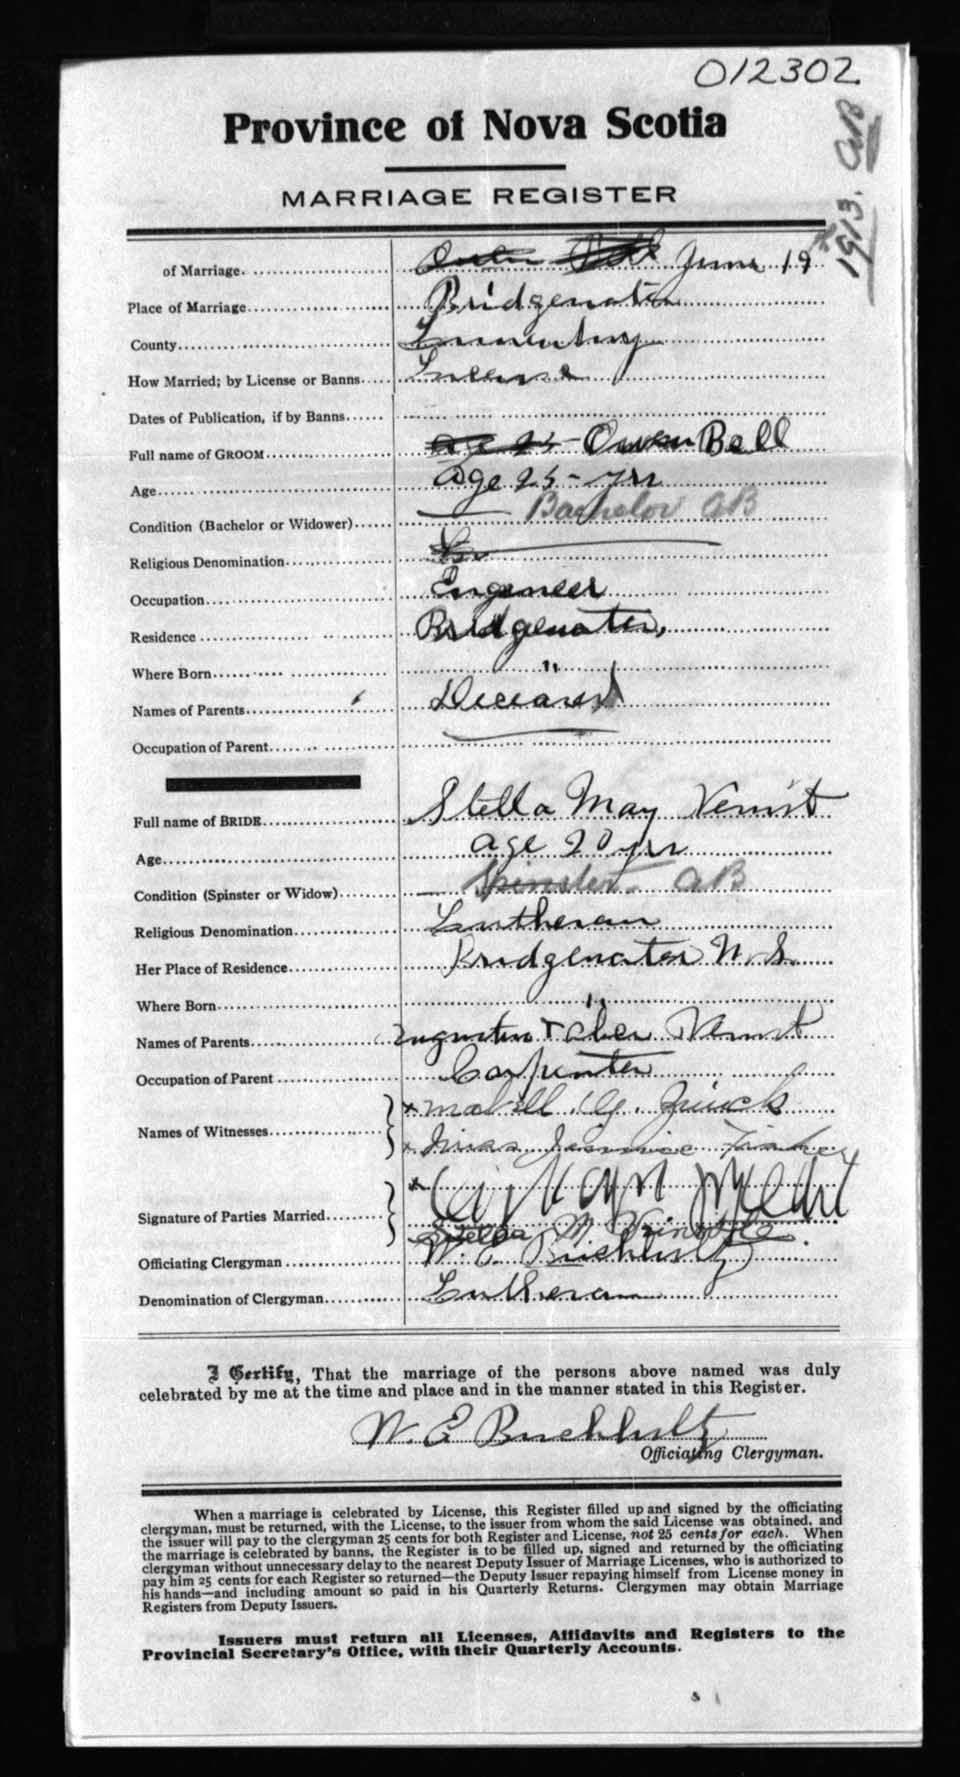 012302
1913. AB
Province of Nova Scotia
MARRIAGE REGISTER
of Marriage. June 19th
Place of Marriage Bridgewater
County Lunenburg
How Married; by License or Banns License
Dates of Publication, if by Banns
Full name of GROOM Owen Bell
Age age 25 - yrs
Condition (Bachelor or Widower) Bachelor AB
Religious Denomination
Occupation Engineer
Residence Bridgewater,
Where Born "
Names of Parents Deceased
Occupation of Parent
Full name of BRIDE Stella May
Age age 20 yrs
Condition (Spinster or Widow) Spinster. AB
Religious Denomination Lutheran
Her Place of Residence Bridgewater N.S.
Where Born "
Names of Parents
Occupation of Parent Carpenter
Names of Witnesses x
x Miss
Signature of Parties Married x
Stella M
Officiating Clergyman W. E. Buchholtz
Denomination of Clergyman Lutheran
I Certify, That the marriage of the persons above named was duly
celebrated by me at the time and place and in the manner stated in this Register.
W. E Buchholtz
Officiating Clergyman.
When a marriage is celebrated by License, this Register filled up and signed by the officiating
clergyman, must be returned, with the License, to the issuer from whom the said License was obtained, and
the issuer will pay to the clergyman 25 cents for both Register and License, not 25 cents for each. When
the marriage is celebrated by banns, the Register is to be filled up, signed and returned by the officiating
clergyman without unnecessary delay to the nearest Deputy Issuer of Marriage Licenses, who is authorized to
pay him 25 cents for each Register so returned—the Deputy Issuer repaying himself from License money in
his hands—and including amount so paid in his Quarterly Returns. Clergymen may obtain Marriage
Registers from Deputy Issuers.
Issuers must return all Licenses, Affidavits and Registers to the
Provincial Secretary's Office, with their Quarterly Accounts.